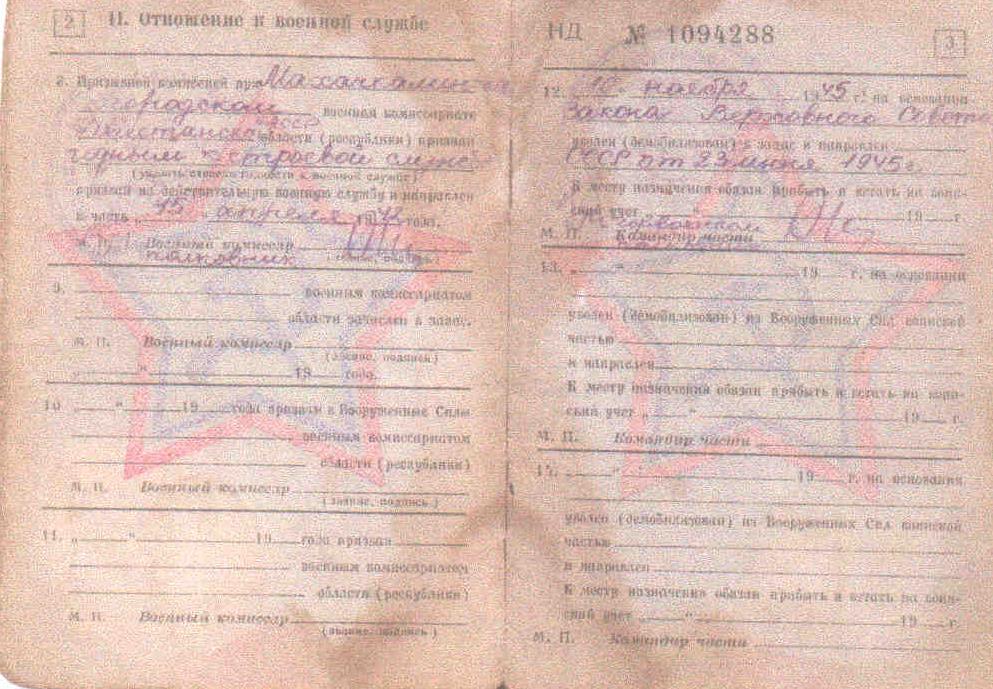 2
II. Отношение к военной службе
8. Призывной комиссией при Махачкалин
городском военном комиссариате
Дагестанской АССР области (республики) признан
годным к строевой службе
(указать степень годности к военной службе)
призван на действительную военную службу и направлен
в часть „15 апреля 19 года.
М. П. Военный комиссар
полковник (звание, подпись)
9. военным комиссариатом
области зачислен в запас.
М. П. Военный комиссар
(звание, подпись)
„ “ 19 года.
10 „ “ 19 года призван в Вооруженные Силы
военным комиссариатом
области (республики)
М. П. Военный комиссар
(звание, подпись)
11. „ “ 19 года призван
военным комиссариатом
области (республики)
М. П. Военный комиссар
(звание, подпись)
НД № 1094288
3
12. ноября 1945 г. на основании
Закона Верховного Совета
уволен (демобилизован) в запас и направлен
СССР от 23 июня 1945 г.
К месту назначения обязан прибыть и встать на воин-
ский учет 19 г
М. П. Командир части
13. „ “ 19 г. на основании
уволен (демобилизован) из Вооруженных Сил воинской
частью
и направлен
К месту назначения обязан прибыть и встать на воин-
ский учет „ “ 19 г.
М. П. Командир части
14. „ “ 19 г. на основании
уволен (демобилизован) из Вооруженных Сил воинской
частью
и направлен
К месту назначения обязан прибыть и встать на воин-
ский учет „ “ 19 г.
М. П. Командир части